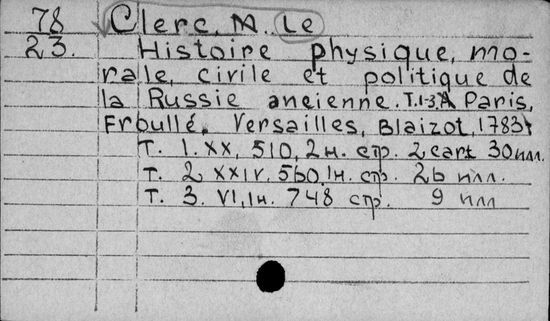 78 Clerc, N. Le
23. Histoire physique, mo-
rale, civile et politique de
la Russie ancienne. T.1-3. Paris,
Froullé, Versailles, Blaizot, 1783
Т. 1. XX, 510, 2 н. стр. 2 cart 30 илл.
Т. 2 XXIV, 560, 1н. стр. 26 илл.
Т. 3. VI, 1н. 748 стр. 9 илл